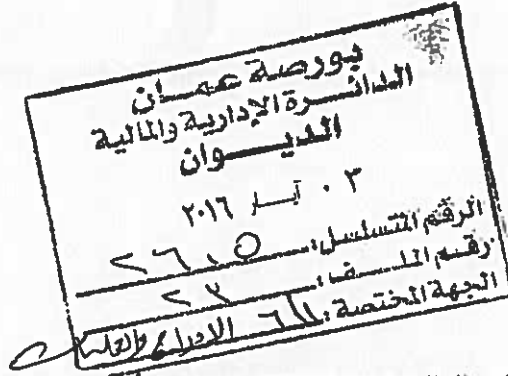 بورصة عمان
الدائرة الإدارية والمالية
الديوان
٠٣ آيار ٢٠١٦
الرقم المتسلسل: ٢٦٠٥
رقم الملف:
الجهة المختصة: الادراج والعمليات